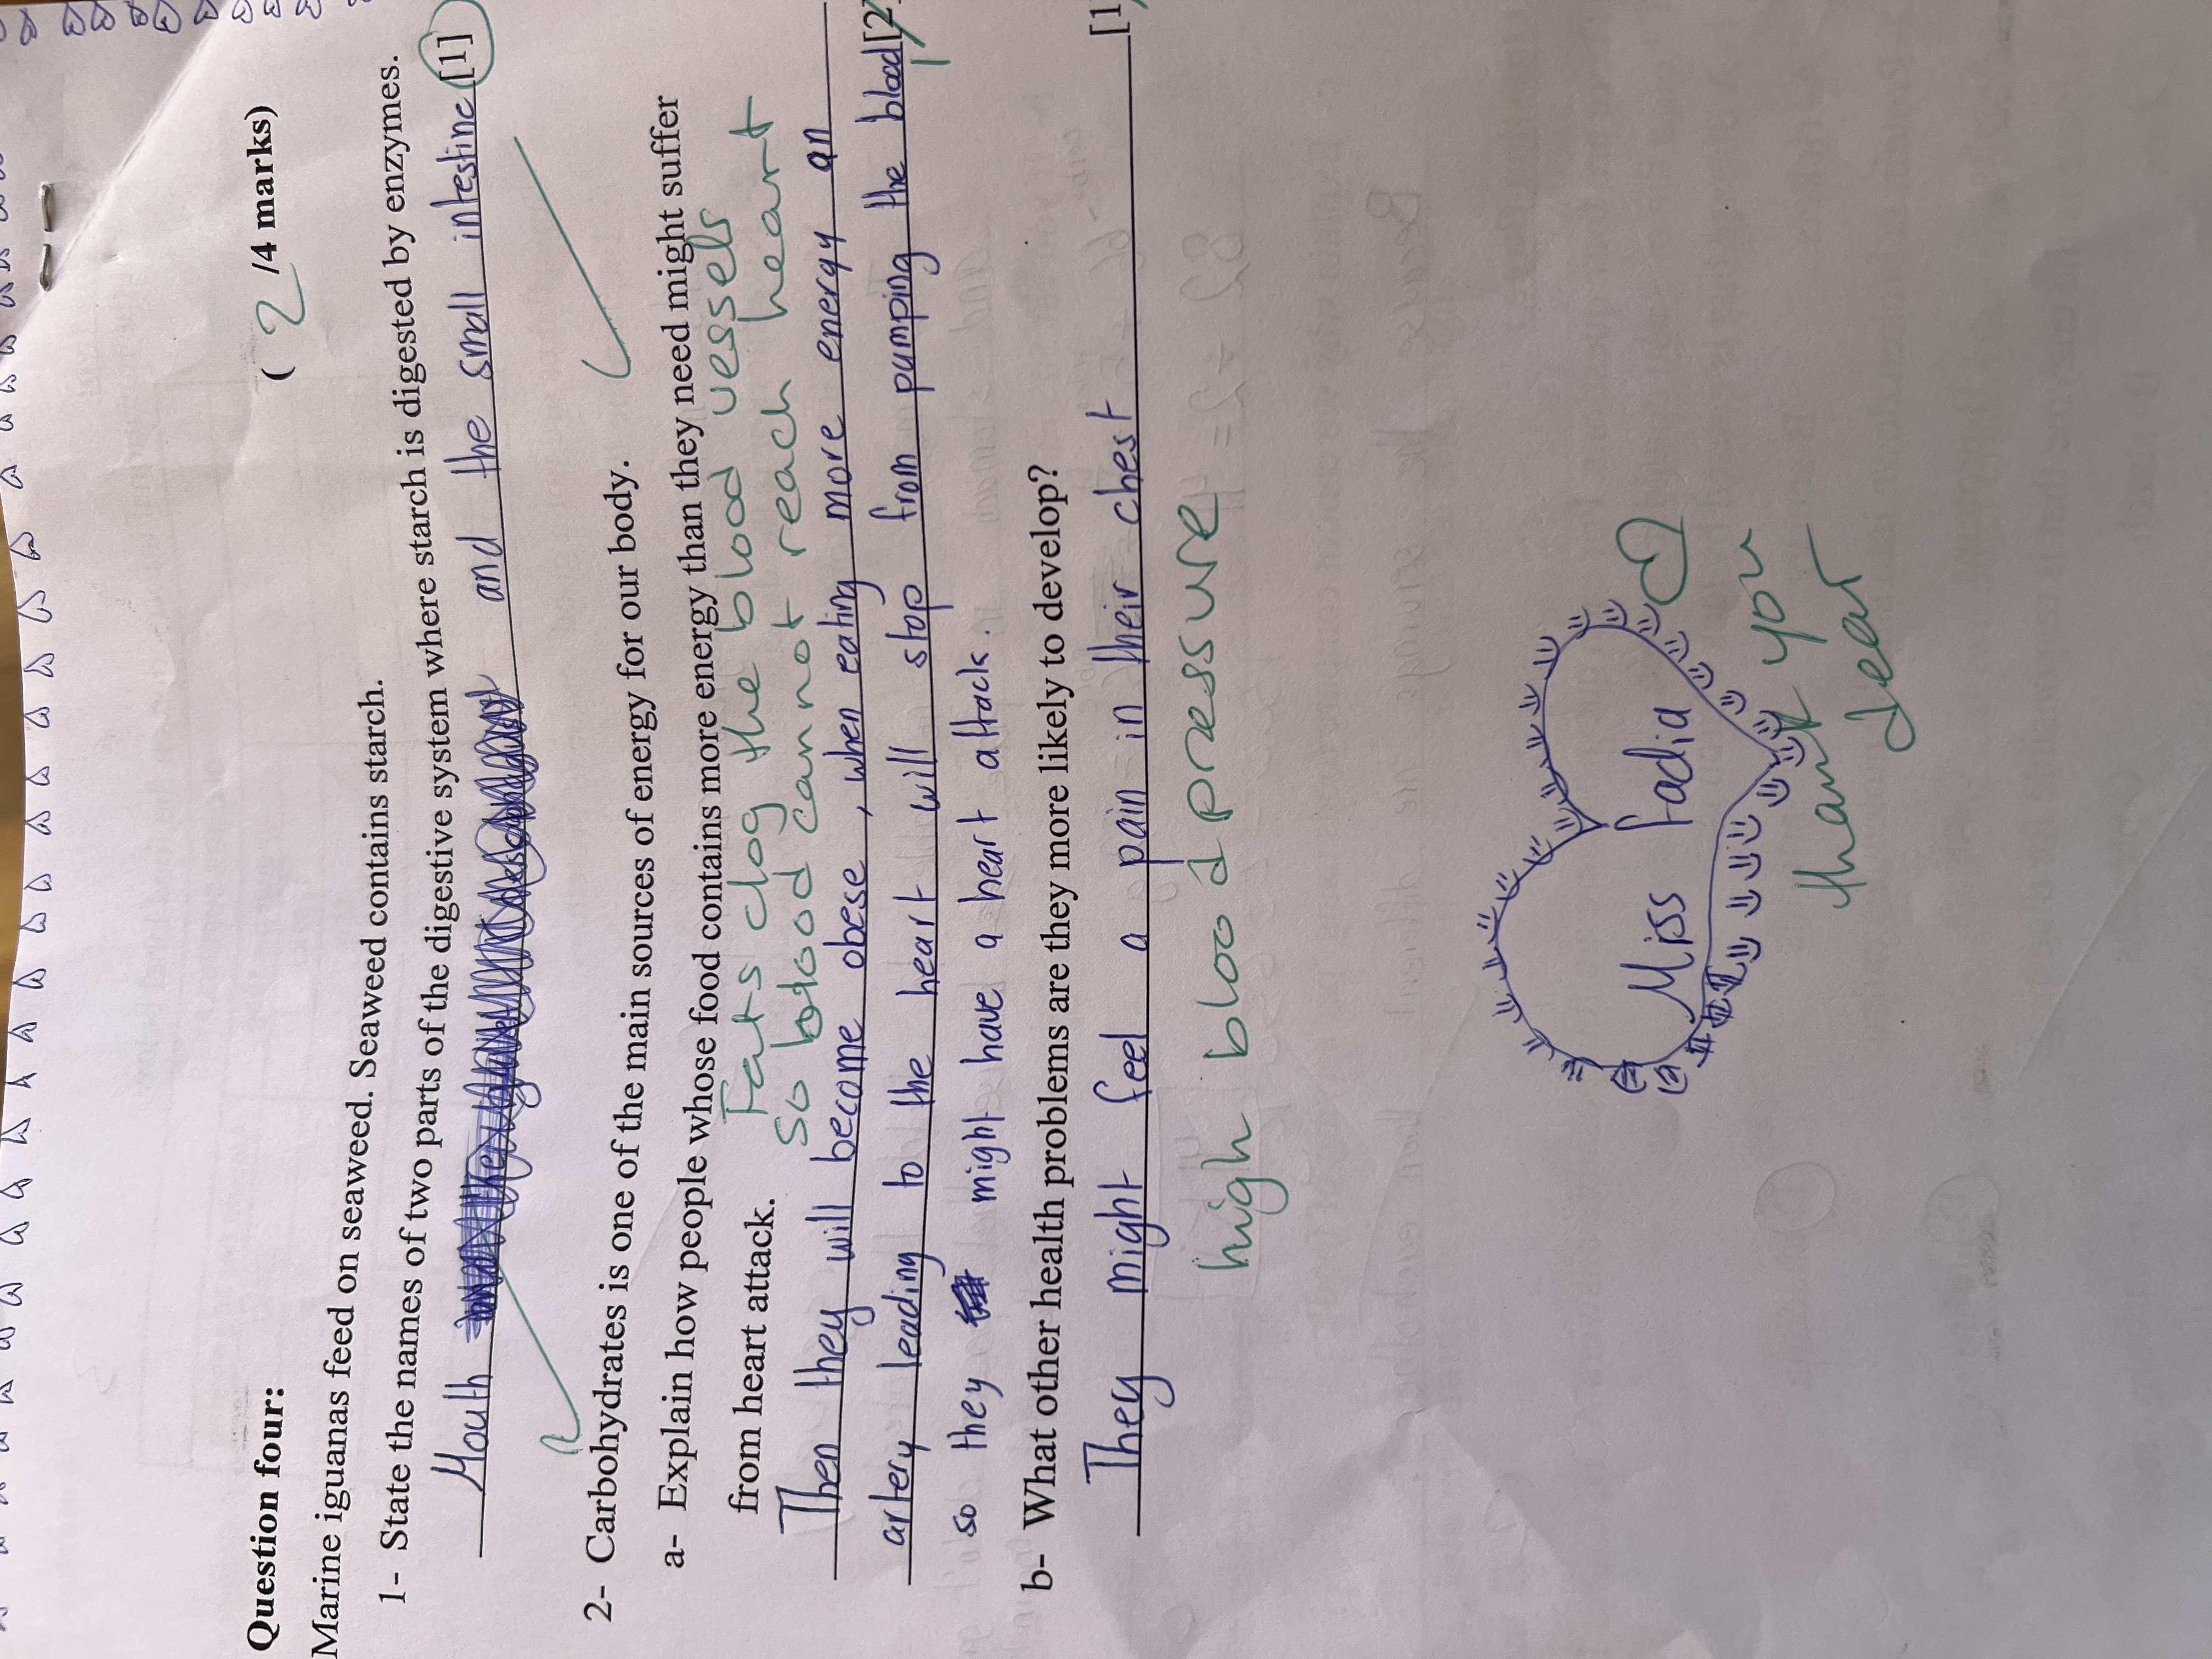 Question four: ( 2 /4 marks)
Marine iguanas feed on seaweed. Seaweed contains starch.
1- State the names of two parts of the digestive system where starch is digested by enzymes.
Mouth and the small intestine [1]
2- Carbohydrates is one of the main sources of energy for our body.
a- Explain how people whose food contains more energy than they need might suffer
from heart attack.
Fats clog the blood vessels
so blood cannot reach heart
Then they will become obese, when eating more energy an
artery leading to the heart will stop from pumping the blood [2]
so they might have a heart attack.
b- What other health problems are they more likely to develop?
They might feel a pain in their chest [1]
high blood pressure
Miss Fadia
thank you
dear